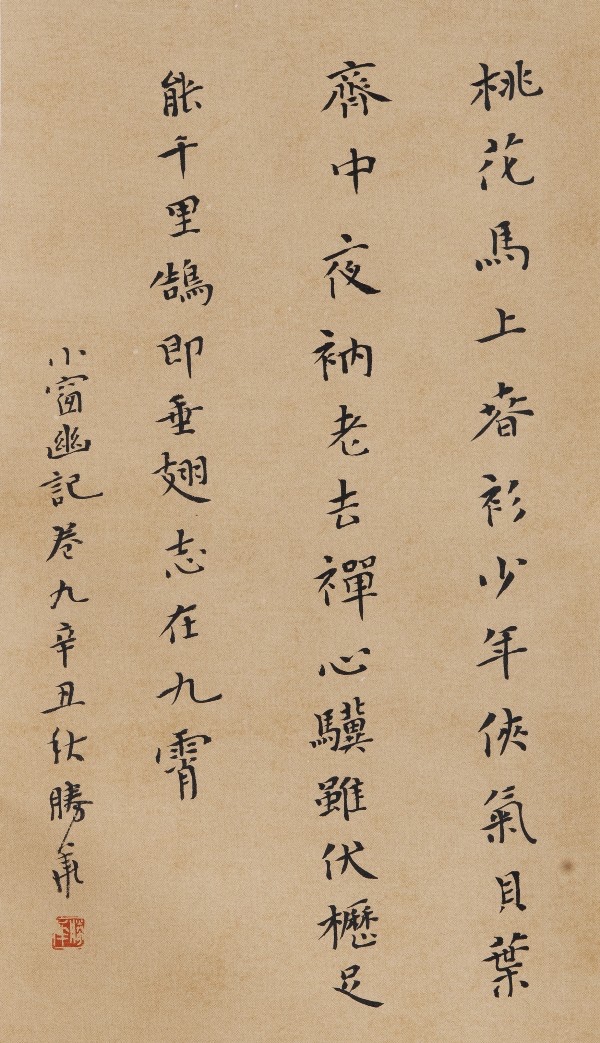 桃花馬上春衫少年俠氣貝葉
齊中夜衲老去禪心驥雖伏櫪足
能千里鵠即垂翅志在九霄
小窗幽記卷九辛丑秋勝軍